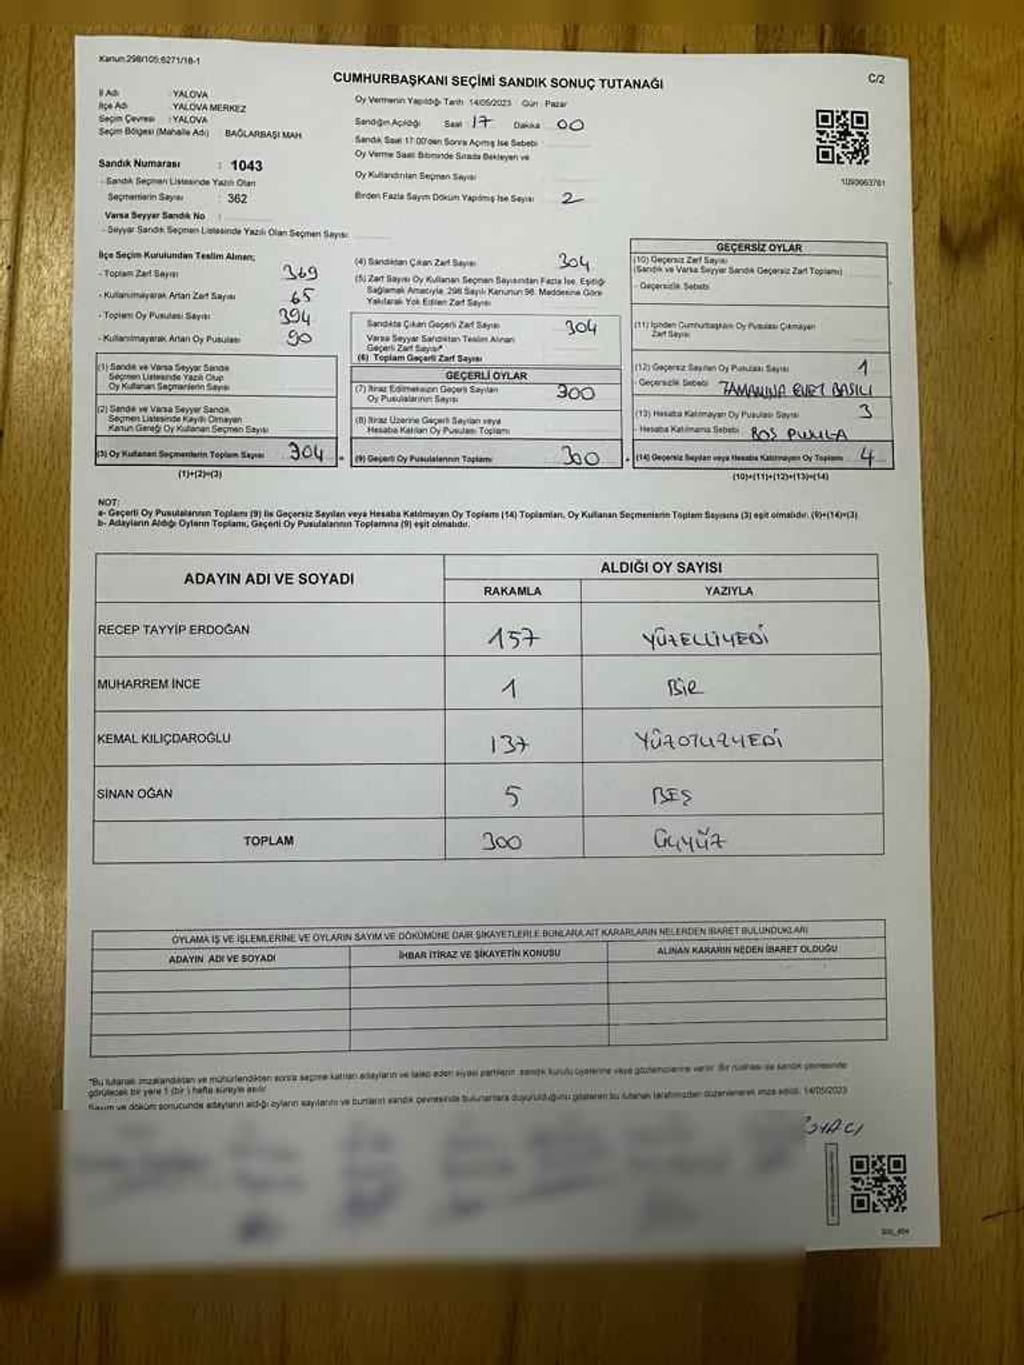 Kanun:298/105;6271/18-1
CUMHURBAŞKANI SEÇİMİ SANDIK SONUÇ TUTANAĞI
C/2
İl Adı : YALOVA
İlçe Adı : YALOVA MERKEZ
Seçim Çevresi : YALOVA
Seçim Bölgesi (Mahalle Adı) : BAĞLARBAŞI MAH
Sandık Numarası : 1043
- Sandık Seçmen Listesinde Yazılı Olan
Seçmenlerin Sayısı : 362
Varsa Seyyar Sandık No :
- Seyyar Sandık Seçmen Listesinde Yazılı Olan Seçmen Sayısı:
Oy Vermenin Yapıldığı Tarih 14/05/2023 Gün : Pazar
Sandığın Açıldığı Saat 17 Dakika 00
Sandık Saat 17:00'den Sonra Açılmış İse Sebebi :
Oy Verme Saati Bitiminde Sırada Bekleyen ve
Oy Kullandırılan Seçmen Sayısı
Birden Fazla Sayım Döküm Yapılmış İse Sayısı 2
1093663761
İlçe Seçim Kurulundan Teslim Alınan;
- Toplam Zarf Sayısı 369
- Kullanılmayarak Artan Zarf Sayısı 65
- Toplam Oy Pusulası Sayısı 394
- Kullanılmayarak Artan Oy Pusulası 90
(1) Sandık ve Varsa Seyyar Sandık
Seçmen Listesinde Yazılı Olup
Oy Kullanan Seçmenlerin Sayısı
(2) Sandık ve Varsa Seyyar Sandık
Seçmen Listesinde Kaydı Olmayan
Kanun Gereği Oy Kullanan Seçmen Sayısı
(3) Oy Kullanan Seçmenlerin Toplam Sayısı 304
(1)+(2)=(3)
(4) Sandıktan Çıkan Zarf Sayısı 304
(5) Zarf Sayısı Oy Kullanan Seçmen Sayısından Fazla İse, Eşitliği
Sağlamak Amacıyla, 298 Sayılı Kanunun 98. Maddesine Göre
Yakılarak Yok Edilen Zarf Sayısı
Sandıkta Çıkan Geçerli Zarf Sayısı 304
Varsa Seyyar Sandıktan Teslim Alınan
Geçerli Zarf Sayısı*
(6) Toplam Geçerli Zarf Sayısı
GEÇERLİ OYLAR
(7) İtiraz Edilmeksizin Geçerli Sayılan
Oy Pusulalarının Sayısı 300
(8) İtiraz Üzerine Geçerli Sayılan veya
Hesaba Katılan Oy Pusulası Toplamı
(9) Geçerli Oy Pusulalarının Toplamı 300
GEÇERSİZ OYLAR
(10) Geçersiz Zarf Sayısı
(Sandık ve Varsa Seyyar Sandık Geçersiz Zarf Toplamı)
- Geçersizlik Sebebi
(11) İçinden Cumhurbaşkanı Oy Pusulası Çıkmayan
Zarf Sayısı
(12) Geçersiz Sayılan Oy Pusulası Sayısı 1
- Geçersizlik Sebebi TAMAMINA EVET BASILI
(13) Hesaba Katılmayan Oy Pusulası Sayısı 3
- Hesaba Katılmama Sebebi BOŞ PUSULA
(14) Geçersiz Sayılan veya Hesaba Katılmayan Oy Toplamı 4
(10)+(11)+(12)+(13)=(14)
NOT:
a- Geçerli Oy Pusulalarının Toplamı (9) ile Geçersiz Sayılan veya Hesaba Katılmayan Oy Toplamı (14) Toplamları, Oy Kullanan Seçmenlerin Toplam Sayısına (3) eşit olmalıdır. (9)+(14)=(3)
b- Adayların Aldığı Oyların Toplamı, Geçerli Oy Pusulalarının Toplamına (9) eşit olmalıdır.
ADAYIN ADI VE SOYADI
ALDIĞI OY SAYISI
RAKAMLA YAZIYLA
RECEP TAYYİP ERDOĞAN 157 YÜZELLİYEDİ
MUHARREM İNCE 1 BİR
KEMAL KILIÇDAROĞLU 137 YÜZOTUZYEDİ
SİNAN OĞAN 5 BEŞ
TOPLAM 300 ÜÇYÜZ
OYLAMA İŞ VE İŞLEMLERİNE VE OYLARIN SAYIM VE DÖKÜMÜNE DAİR ŞİKAYETLERLE BUNLARA AİT KARARLARIN NELERDEN İBARET BULUNDUKLARI
ADAYIN ADI VE SOYADI İHBAR İTİRAZ VE ŞİKAYETİN KONUSU ALINAN KARARIN NEDEN İBARET OLDUĞU
*Bu tutanak imzalandıktan ve mühürlendikten sonra seçime katılan adayların ve talep eden siyasi partilerin sandık kurulu üyelerine veya gözlemcilerine verilir. Bir nüshası da sandık çevresinde
görülecek bir yere 1 (bir) hafta süreyle asılır.
Sayım ve döküm sonucunda adayların aldığı oyların sayılarını ve bunların sandık çevresinde bulunanlara duyurulduğunu gösteren bu tutanak tarafımızdan düzenlenerek imza edildi. 14/05/2023